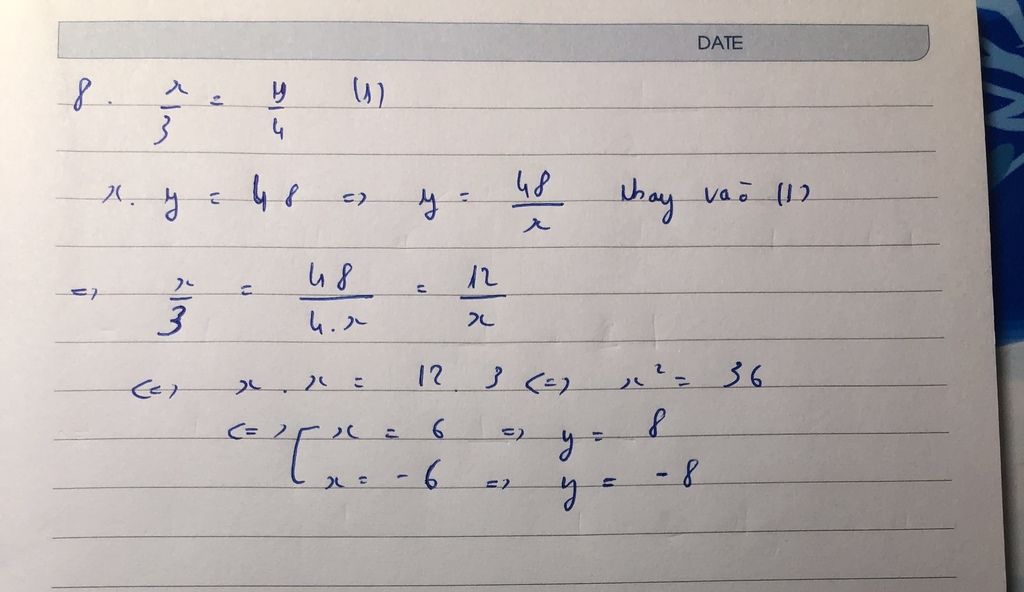 DATE
8. x/3 = y/4 (1)
x. y = 48 => y = 48/x thay vaō (1)
=> x/3 = 48/4.x = 12/x
<=> x . x = 12 . 3 <=> x² = 36
<=> [ x = 6 => y = 8
x = -6 => y = -8